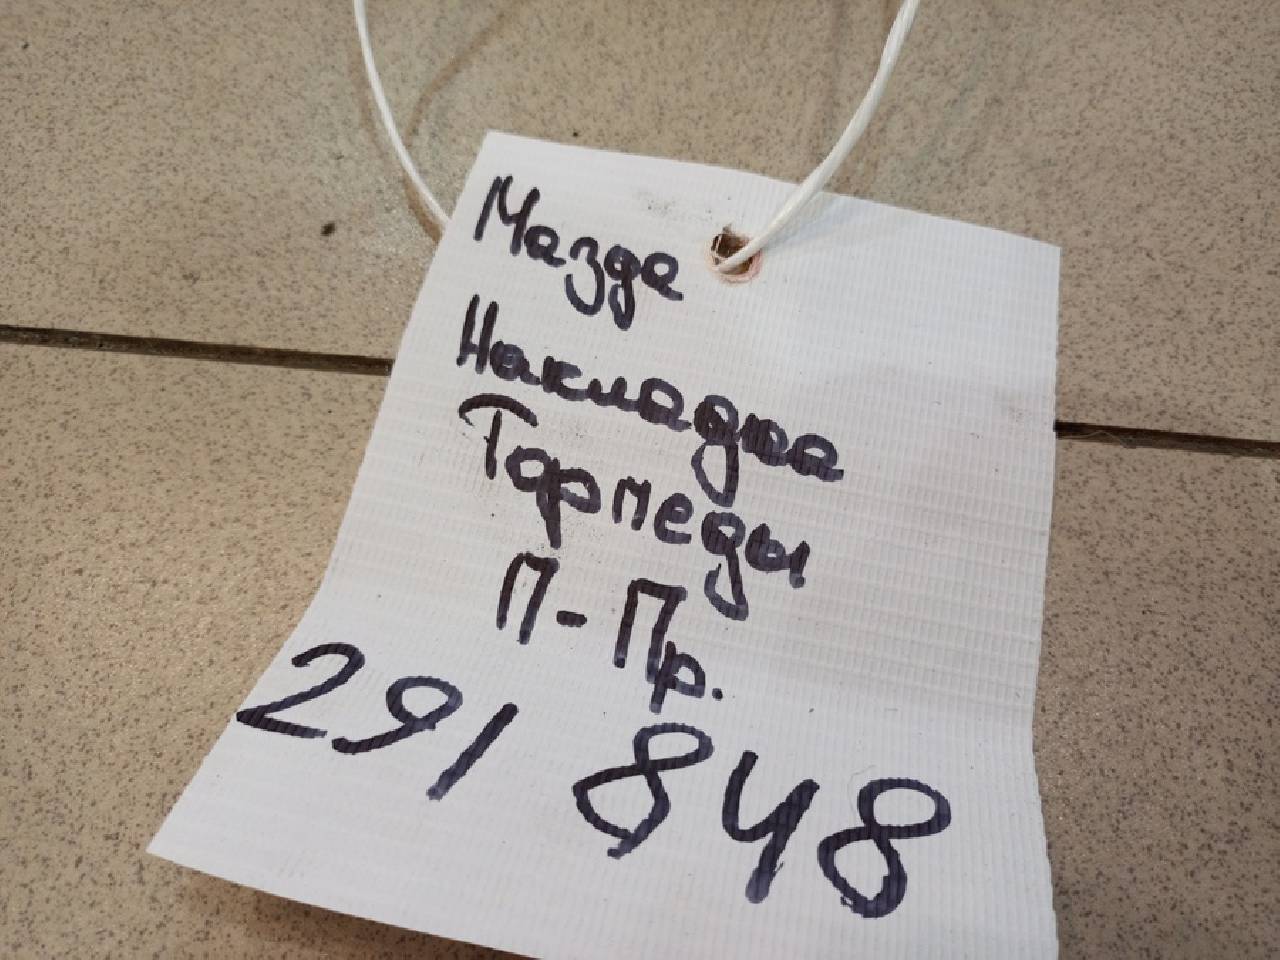 Мазда
Накладка
Торпеды
П-Пр.
291 848